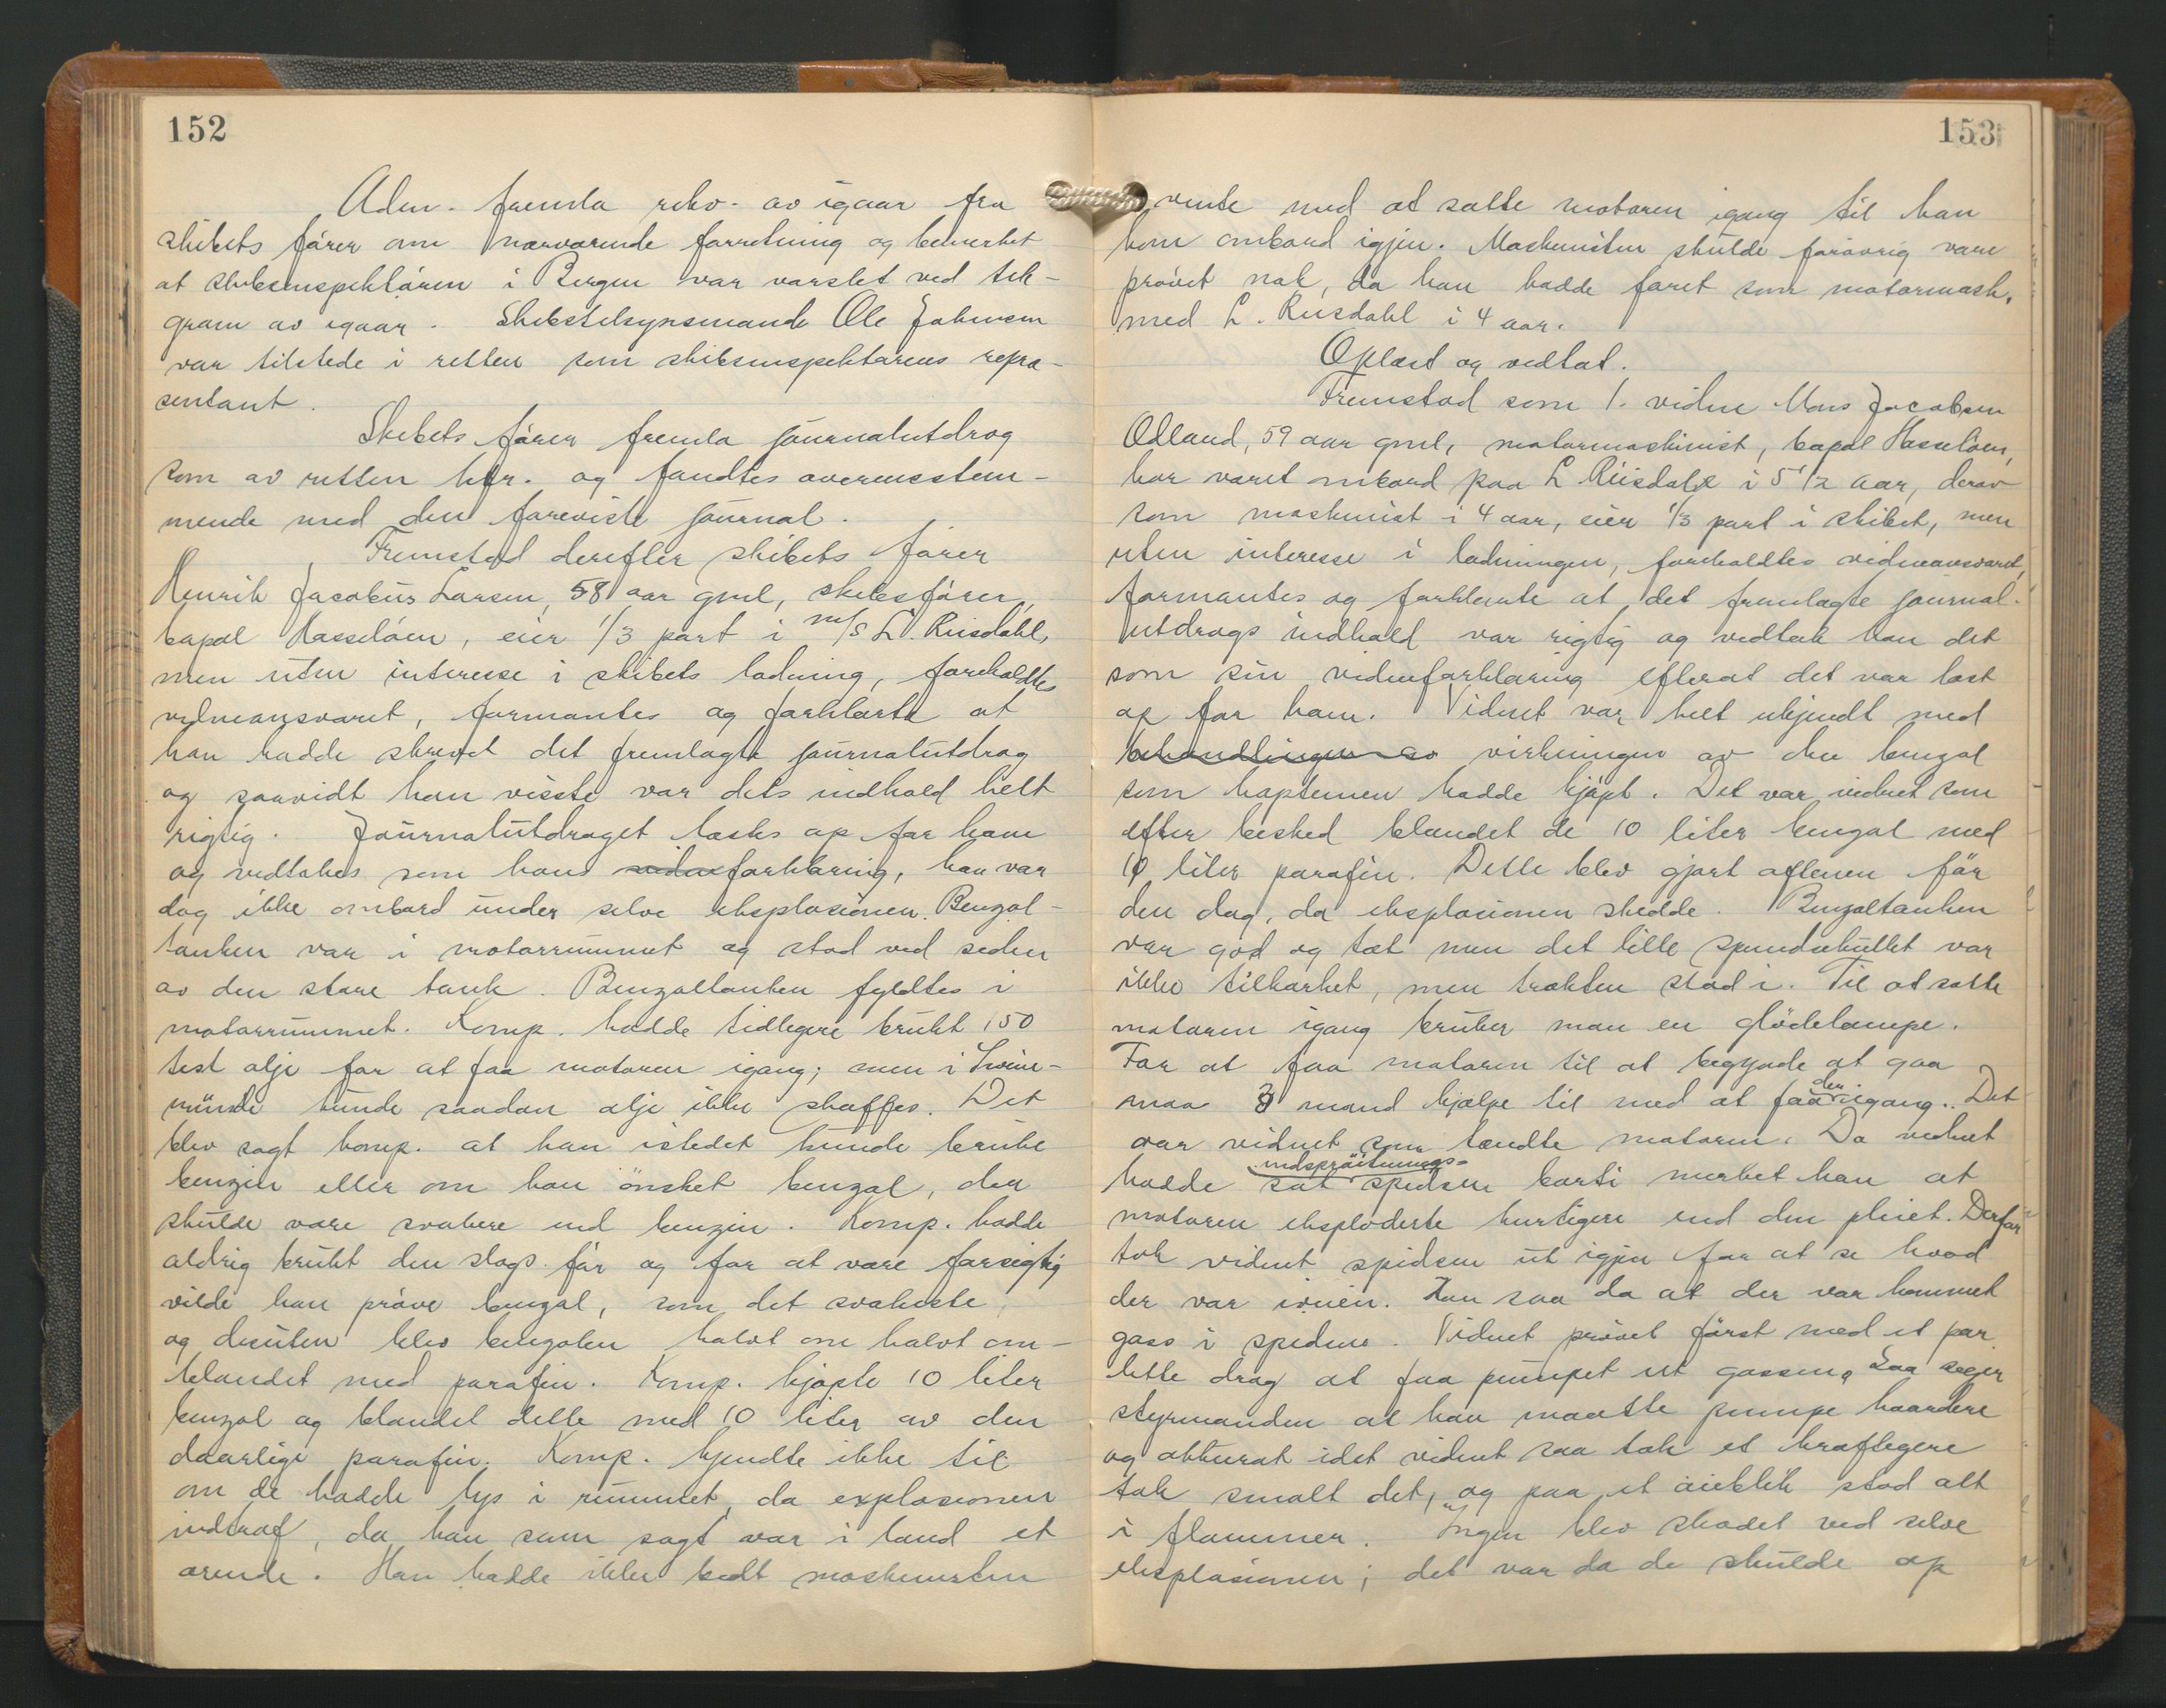 152
Adm. fremla rekv. av igaar fra
skibets fører om nærværende forretning og bemerket
at skibsinspektøren i Bergen var varslet ved tele-
gram av igaar. Skibstilsynsmand Ole Johnsen
var tilstede i retten som skibsinspektørens repræ-
sentant.
Skibets fører fremla journalutdrag
som av retten kfr. og fandtes overensstem-
mende med den foreviste journal.
Fremstod derefter skibets fører
Henrik Jacobus Larsen, 58 aar gml, skibsfører,
bopæl Hasseløen, eier 1/3 part i m/s L. Riisdahl,
men uten interesse i skibets ladning, foreholdtes
vidneansvaret, formantes og forklarte at
han hadde skrevet det fremlagte journalutdrag
og saavidt han visste var dets indhold helt
rigtig. Journalutdraget læstes op for ham
og vedtokes som hans vidneforklaring, han var
dog ikke ombord under selve eksplosionen. Benzol-
tanken var i motorrummet og stod ved siden
av den store tank. Benzoltanken fyldtes i
motorrummet. Komp. hadde tidligere brukt 150
test olje for at faa motoren igang; men i Swine-
münde kunde saadan olje ikke skaffes. Det
blev sagt komp. at han istedet kunde bruke
benzin eller om han ønsket benzol, den
skulde være svakere end benzin. Komp. hadde
aldrig brukt den slags før og for at være forsigtig
vilde han prøve benzol, som det svakeste,
og desuten blev benzolen halvt om halvt om-
blandet med parafin. Komp. kjøpte 10 liter
benzol og blandet dette med 10 liter av den
daarlige parafin. Komp. kjendte ikke til
om de hadde lys i rummet, da explosionen
indtraf, da han som sagt var i land et
ærende. Han hadde ikke bedt maskinisten
153
vente med at sætte motoren igang til han
kom ombord igjen. Maskinisten skulde forøvrig være
prøvet nok, da han hadde faret som motormask.
med L. Riisdahl i 4 aar.
Oplæst og vedtat.
Fremstod som 1. vidne Mons Jacobsen
Odland, 59 aar gml, motormaskinist, bopæl Hasseløen,
har været ombord paa L Riisdahl i 5 1/2 aar, derav
som maskinist i 4 aar, eier 1/3 part i skibet, men
uten interesse i ladningen, foreholdtes vidneansvaret,
formantes og forklarte at det fremlagte journal-
utdrags indhold var rigtig og vedtok han det
som sin vidneforklaring efterat det var læst
op for ham. Vidnet var helt ukjendt med
behandlingen av virkningen av den benzol
som kapteinen hadde kjøpt. Det var vidnet som
efter besked blandet de 10 liter benzol med
10 liter parafin. Dette blev gjort aftenen før
den dag, da eksplosionen skedde. Benzoltanken
var god og tæt men det lille spundsehullet var
ikke tilkorket, men trakten stod i. Til at sætte
motoren igang bruker man en glødelampe.
For at faa motoren til at begynde at gaa
maa 3 mand hjælpe til med at faa den igang. Det
var vidnet som tændte motoren. Da vidnet
hadde sat indsprøitnings-spidsen borti merket han at
motoren eksploderte hurtigere end den pleiet. Derfor
tok vidnet spidsen ut igjen for at se hvad
der var iveien. Han saa da at der var kommet
gass i spidsen. Vidnet prøvet først med et par
lette drag at faa pumpet ut gassen. Saa seger
styrmanden at han maatte pumpe haardere
og akkurat idet vidnet saa tok et kraftigere
tak smalt det, og paa et øieblik stod alt
i flammer. Ingen blev skadet ved selve
eksplosionen; det var da de skulde op